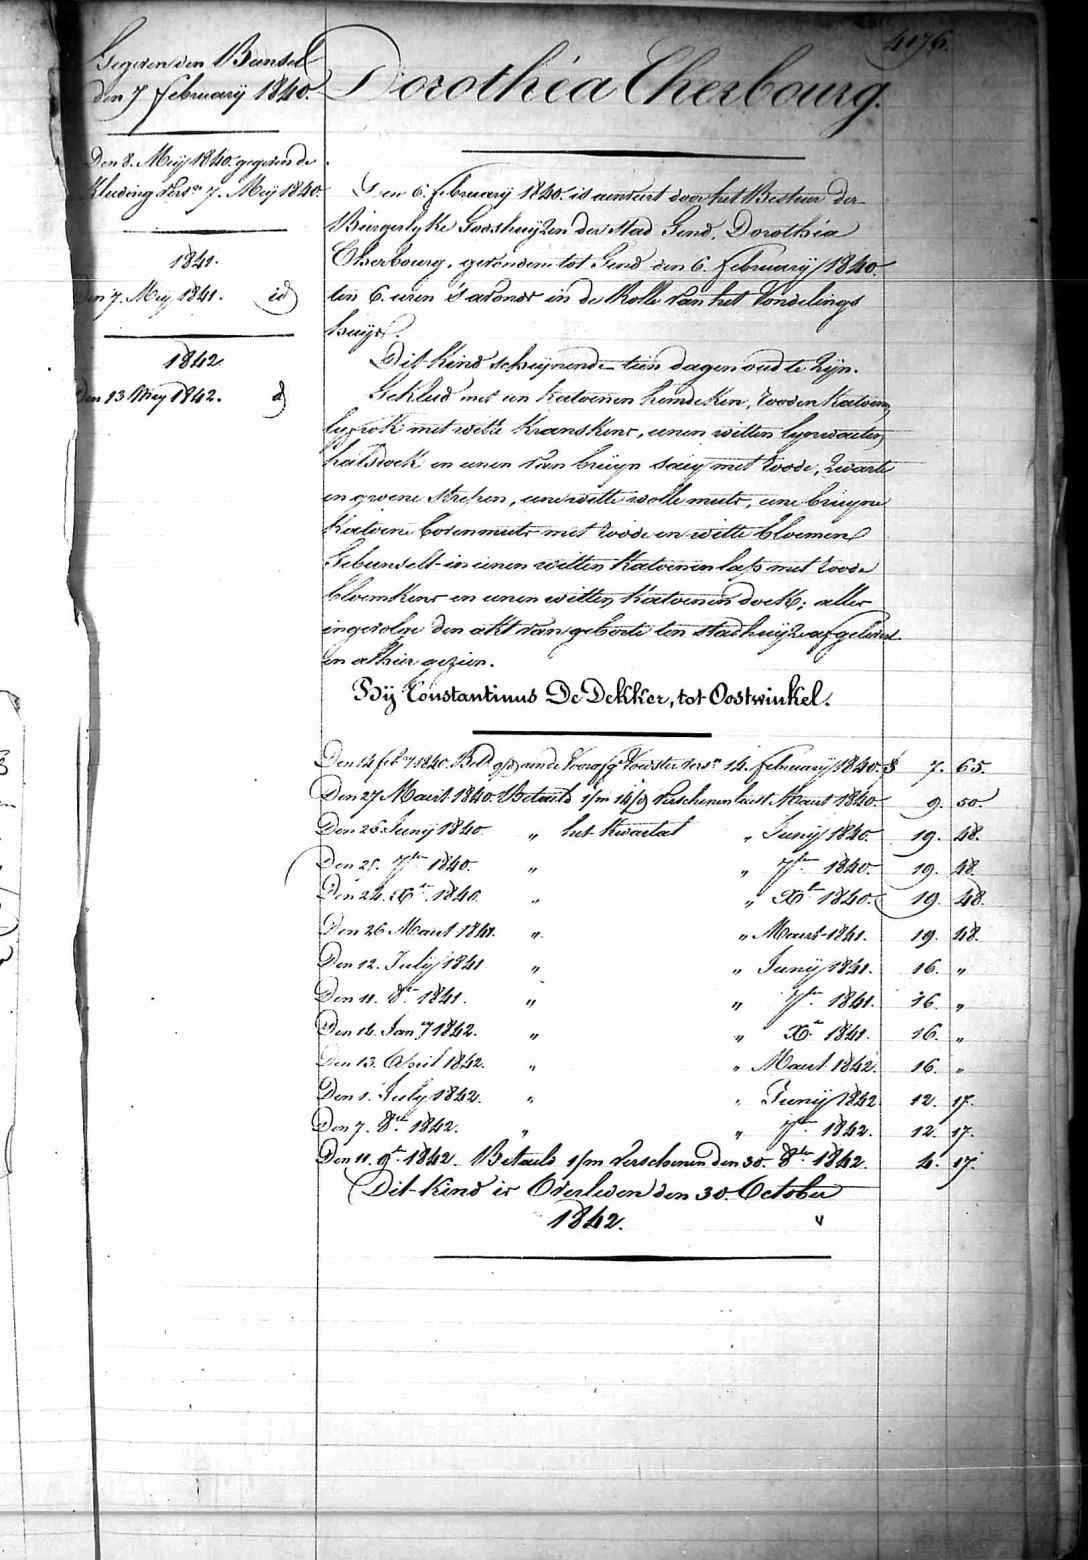 4176.
Dorothéa Cherbourg.
Gegeven den Bunsel
den 7 february 1840.
Den 8. Meij 1840. gegeven de
Kleeding vers.n 7. Meij 1840.
1841.
Den 7. Meij 1841. id
1842
Den 13 Meij 1842. d
Den 6. february 1840. is aenveert door het Bestuer der
Burgerlyke Godshuijzen der Stad Gend, Dorothéa
Cherbourg, gevonden tot Gend den 6. february 1840.
ten 6. uren 's avonds in de Rolle van het Vondelings
huijs.
Dit Kind scheijnende tien dagen oud te Zijn.
Gekleed met een Katoenen hemdeken, rooden Katoenen
lyfrok met witte Kranskens, eenen witten lynwaeten
halsdoek en eenen van bruijn saeij met roode, zwarte
en groene strepen, eene witte wolle muts, eene bruijne
Katoene bovenmuts met roode en witte bloemen
Gebunselt in eenen witten Katoenen lap met roode
bloemkens en eenen witten Katoenen doek; alles
ingevolge den akt van geboorte ten stadhuijze afgeleverd
en alhier gezien.
Bij Constantinus De Dekker, tot Oostwinkel.
Den 14 feb.ry 1840. aende Voedster vers.n 14. february 1840. 7. 65.
Den 27 Maert 1840. Betaeld verschenen laest Maert 1840 9. 50.
Den 25 Junij 1840. „ het Kwartael „ Junij 1840. 19. 48.
Den 25. 7.ber 1840. „ „ 7.ber 1840. 19. 48.
Den 24. X.ber 1840. „ „ X.ber 1840. 19. 48.
Den 26 Maert 1841. „ „ Maert 1841. 19. 48.
Den 12. Julij 1841 „ „ Junij 1841. 16. „
Den 11. 8.ber 1841. „ „ 7.ber 1841. 16. „
Den 14. Jan.y 1842. „ „ X.ber 1841. 16. „
Den 13. April 1842. „ „ Maert 1842. 16. „
Den 1. July 1842. „ „ Junij 1842 12. 17.
Den 7. 8.ber 1842. „ „ 7.ber 1842. 12. 17.
Den 11. 9.ber 1842. Betaeld 1/m verschenen den 30. 8.ber 1842. 4. 17.
Dit Kind is Overleden den 30. October
1842.